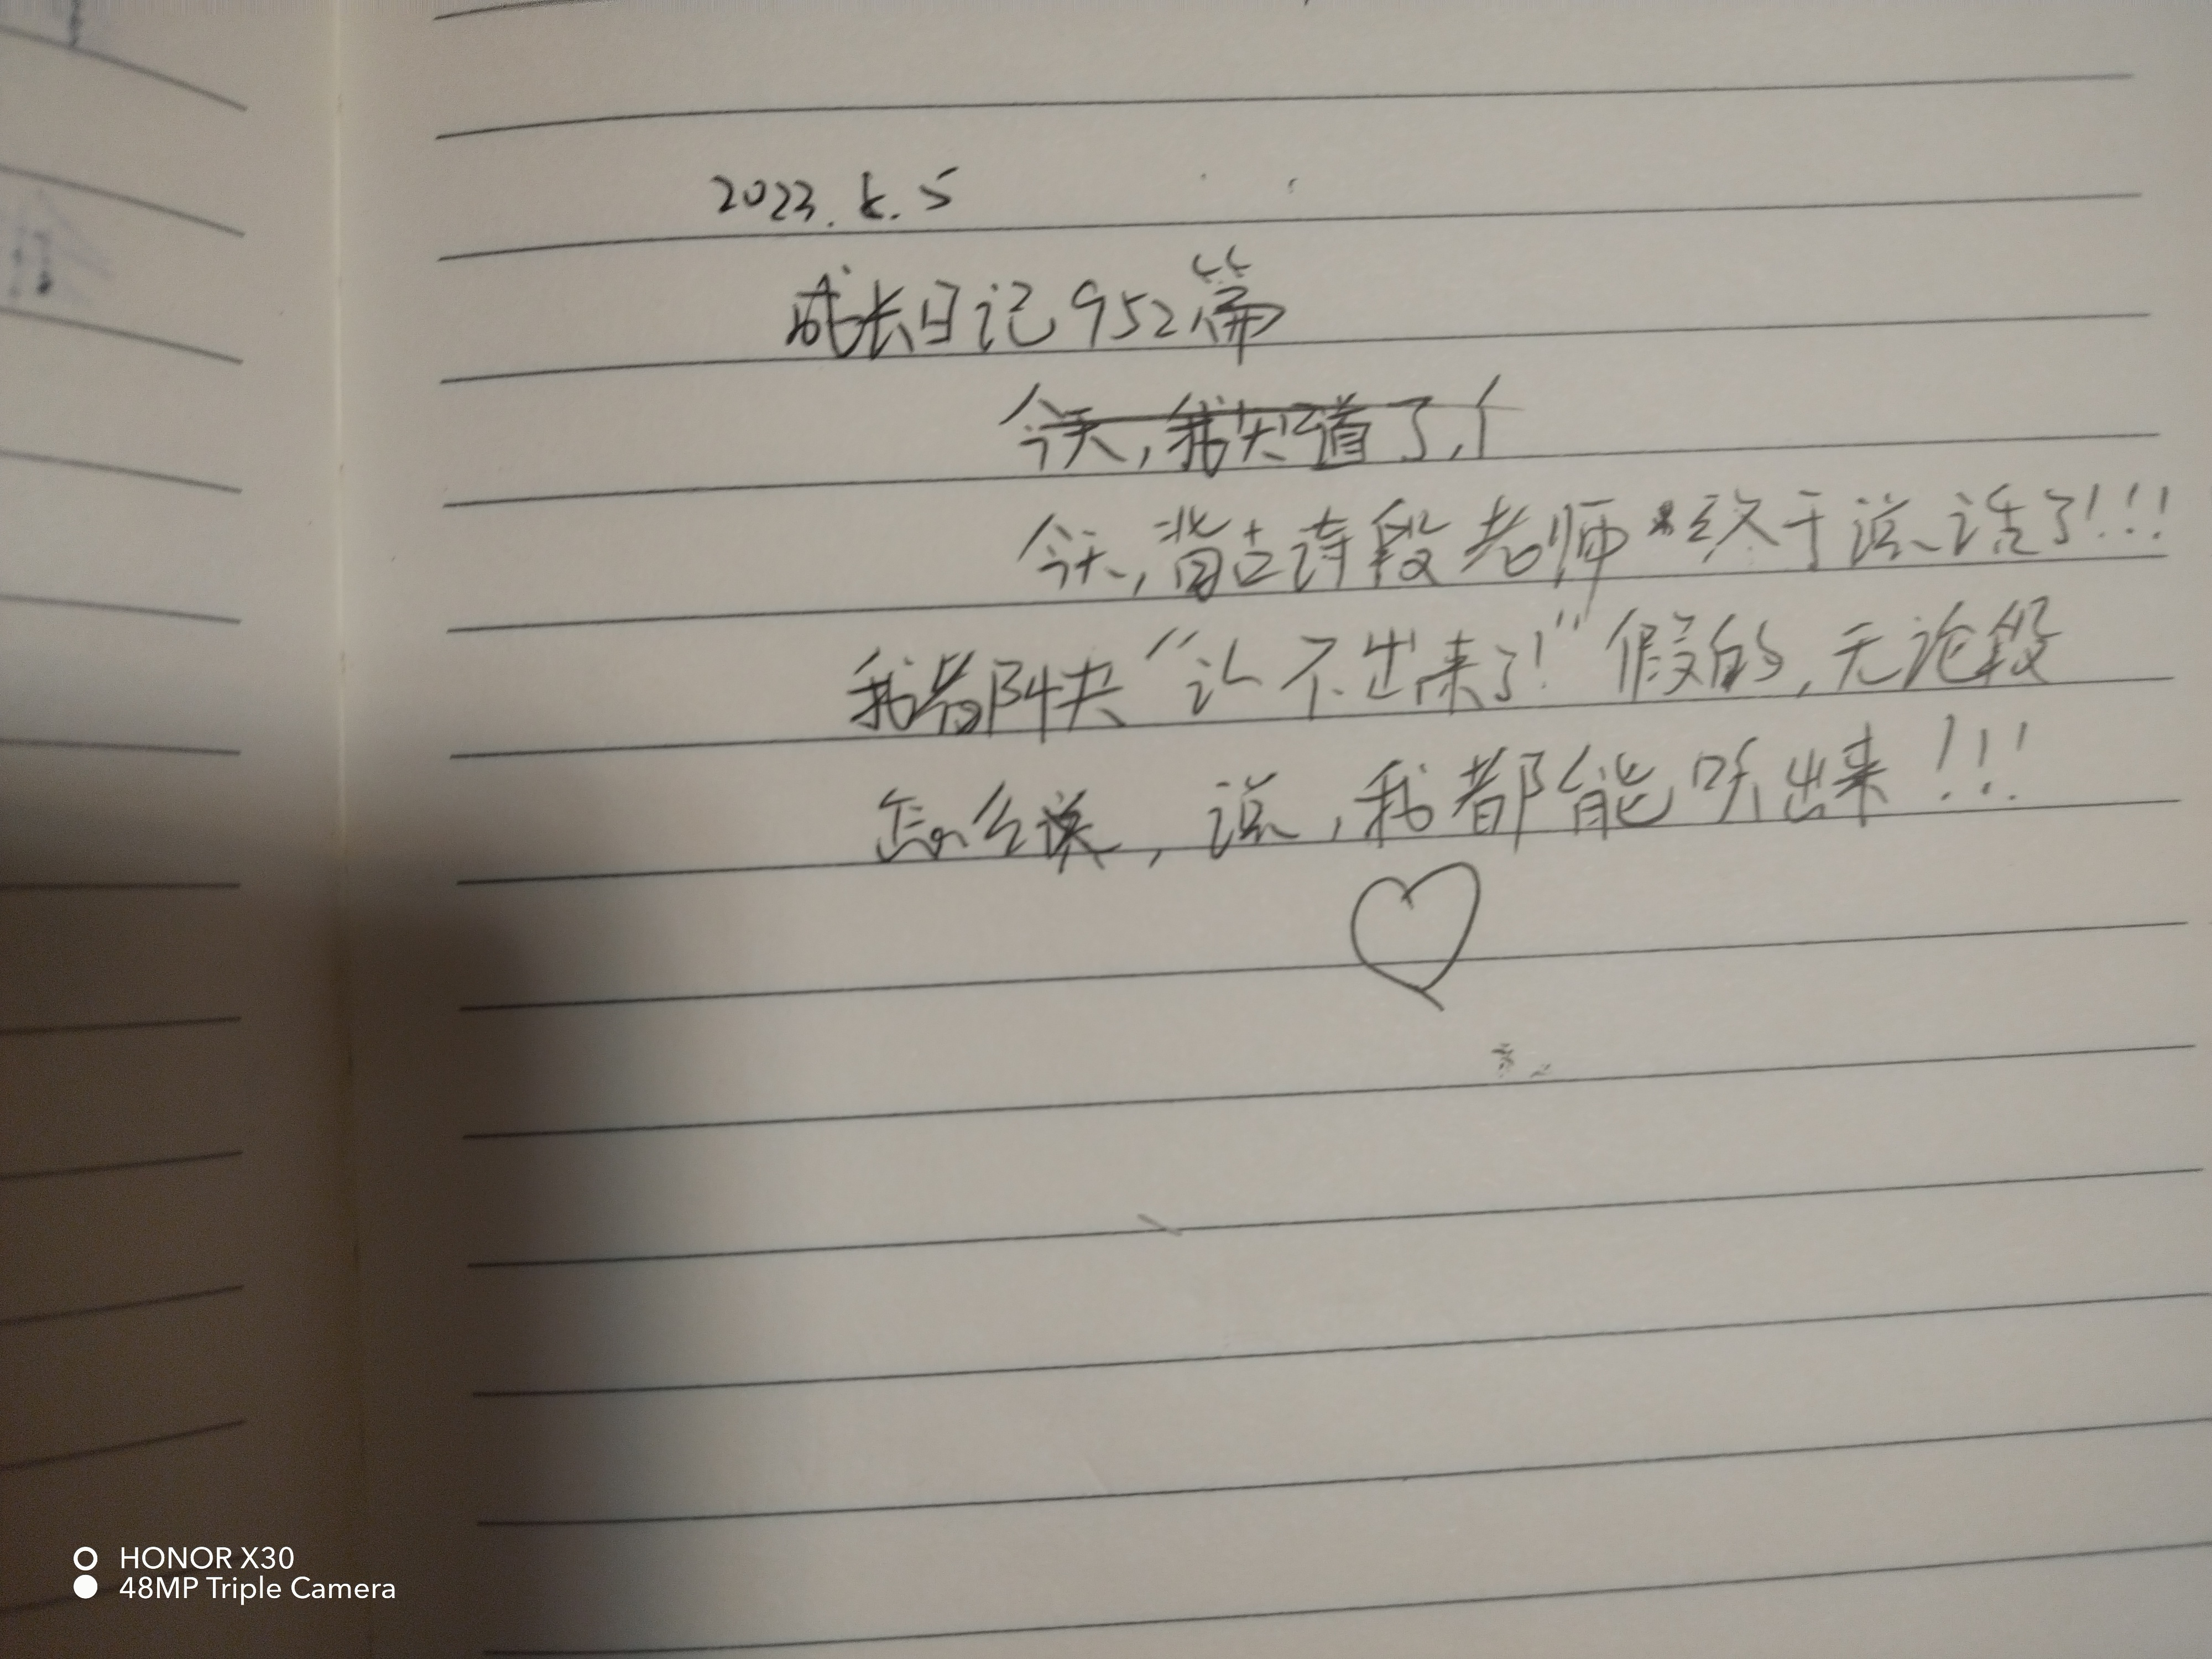 2023.6.5
成长日记952篇
今天,我知道了,个
今天,背古诗段老师终于说话了!!!
我都快“认不出来了!”假的,无论段
怎么读,说,我都能听出来!!!
HONOR X30
48MP Triple Camera